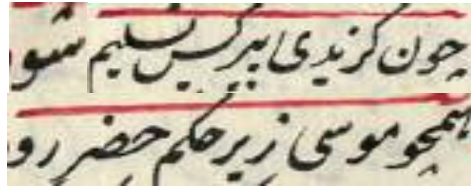 چون کزیدی پیر تسلیم شو
همچو موسی زیر حکم خضر رو